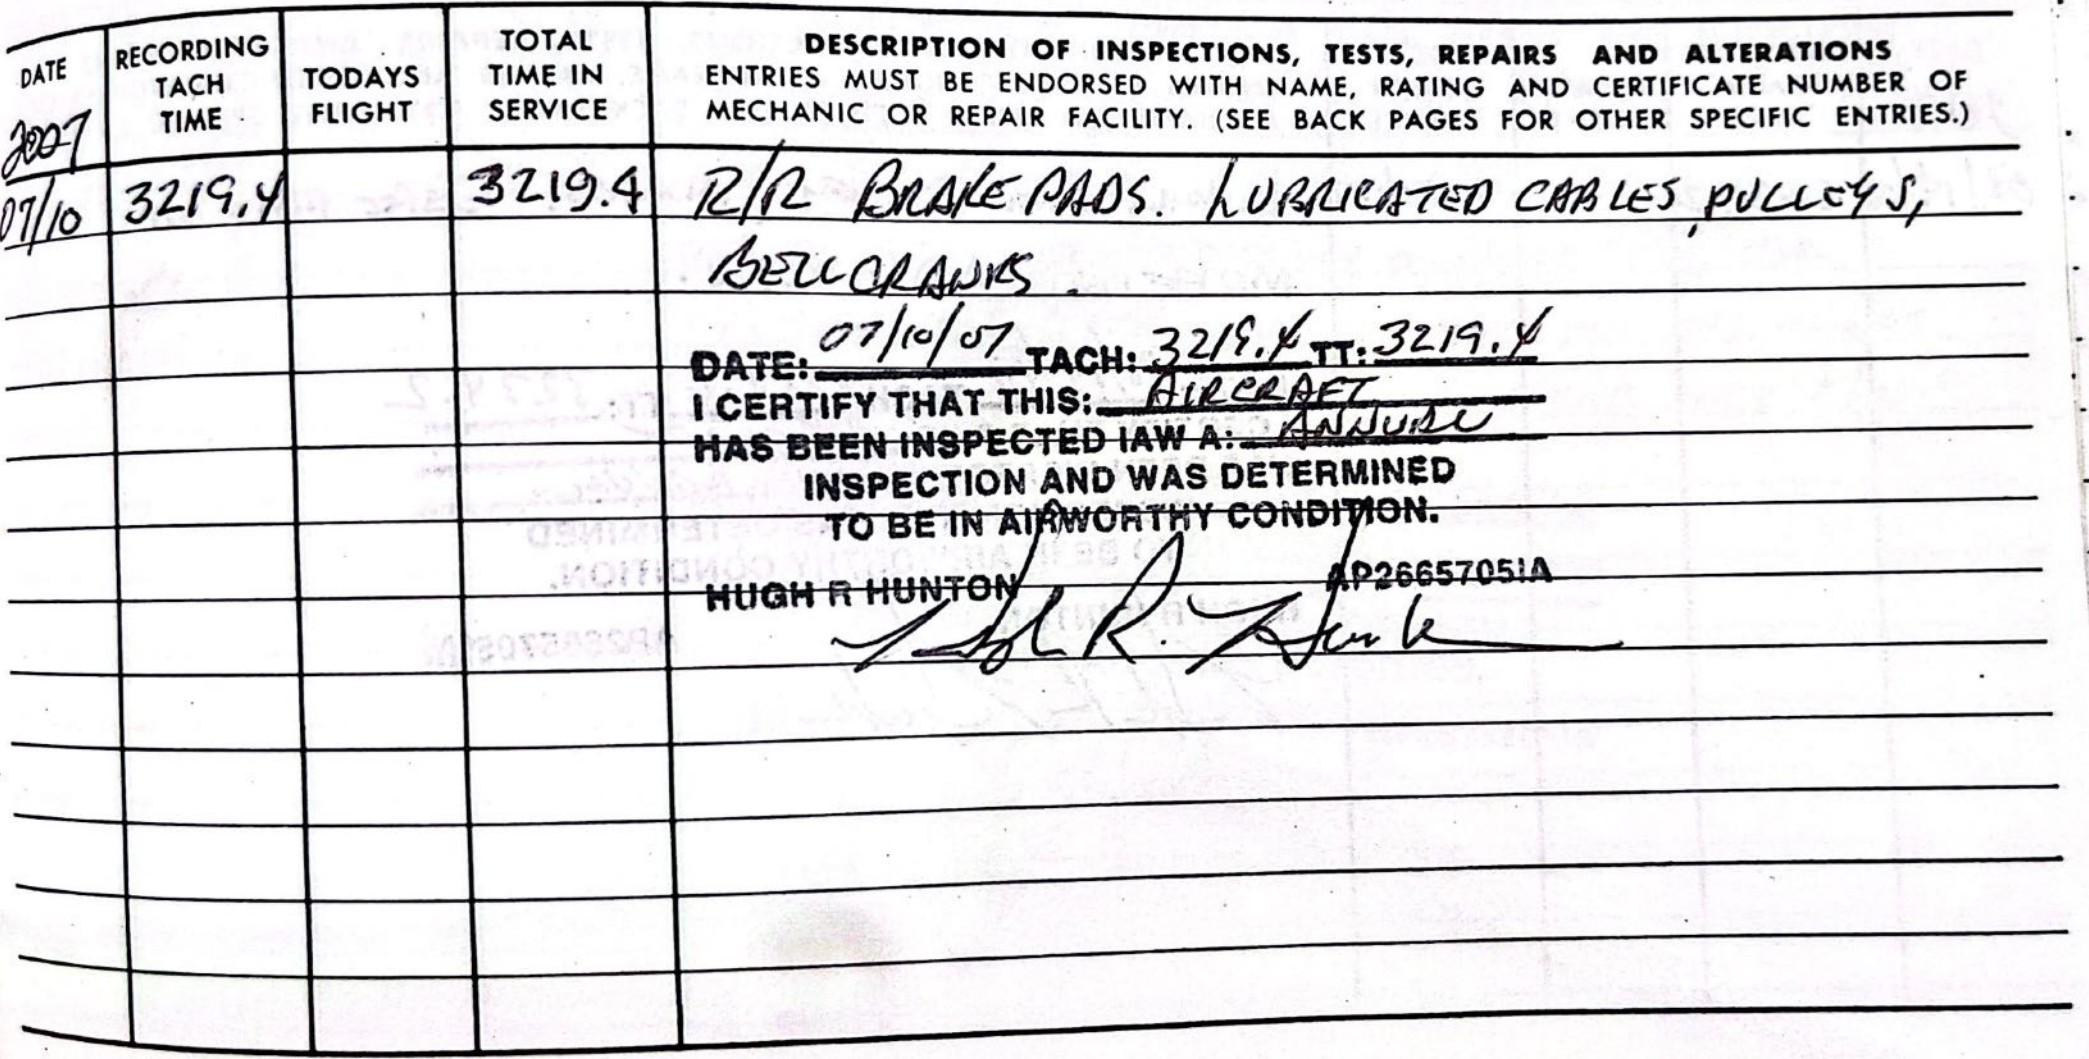 DATE RECORDING TACH TIME TODAYS FLIGHT TOTAL TIME IN SERVICE
DESCRIPTION OF INSPECTIONS, TESTS, REPAIRS AND ALTERATIONS
ENTRIES MUST BE ENDORSED WITH NAME, RATING AND CERTIFICATE NUMBER OF
MECHANIC OR REPAIR FACILITY. (SEE BACK PAGES FOR OTHER SPECIFIC ENTRIES.)
2007
07/10 3219.4 3219.4 R/R BRAKE PADS. LUBRICATED CABLES, PULLEYS,
BELLCRANKS.
DATE: 07/10/07 TACH: 3219.4 TT: 3219.4
I CERTIFY THAT THIS: AIRCRAFT
HAS BEEN INSPECTED IAW A: ANNUAL
INSPECTION AND WAS DETERMINED
TO BE IN AIRWORTHY CONDITION.
HUGH R HUNTON AP2665705IA